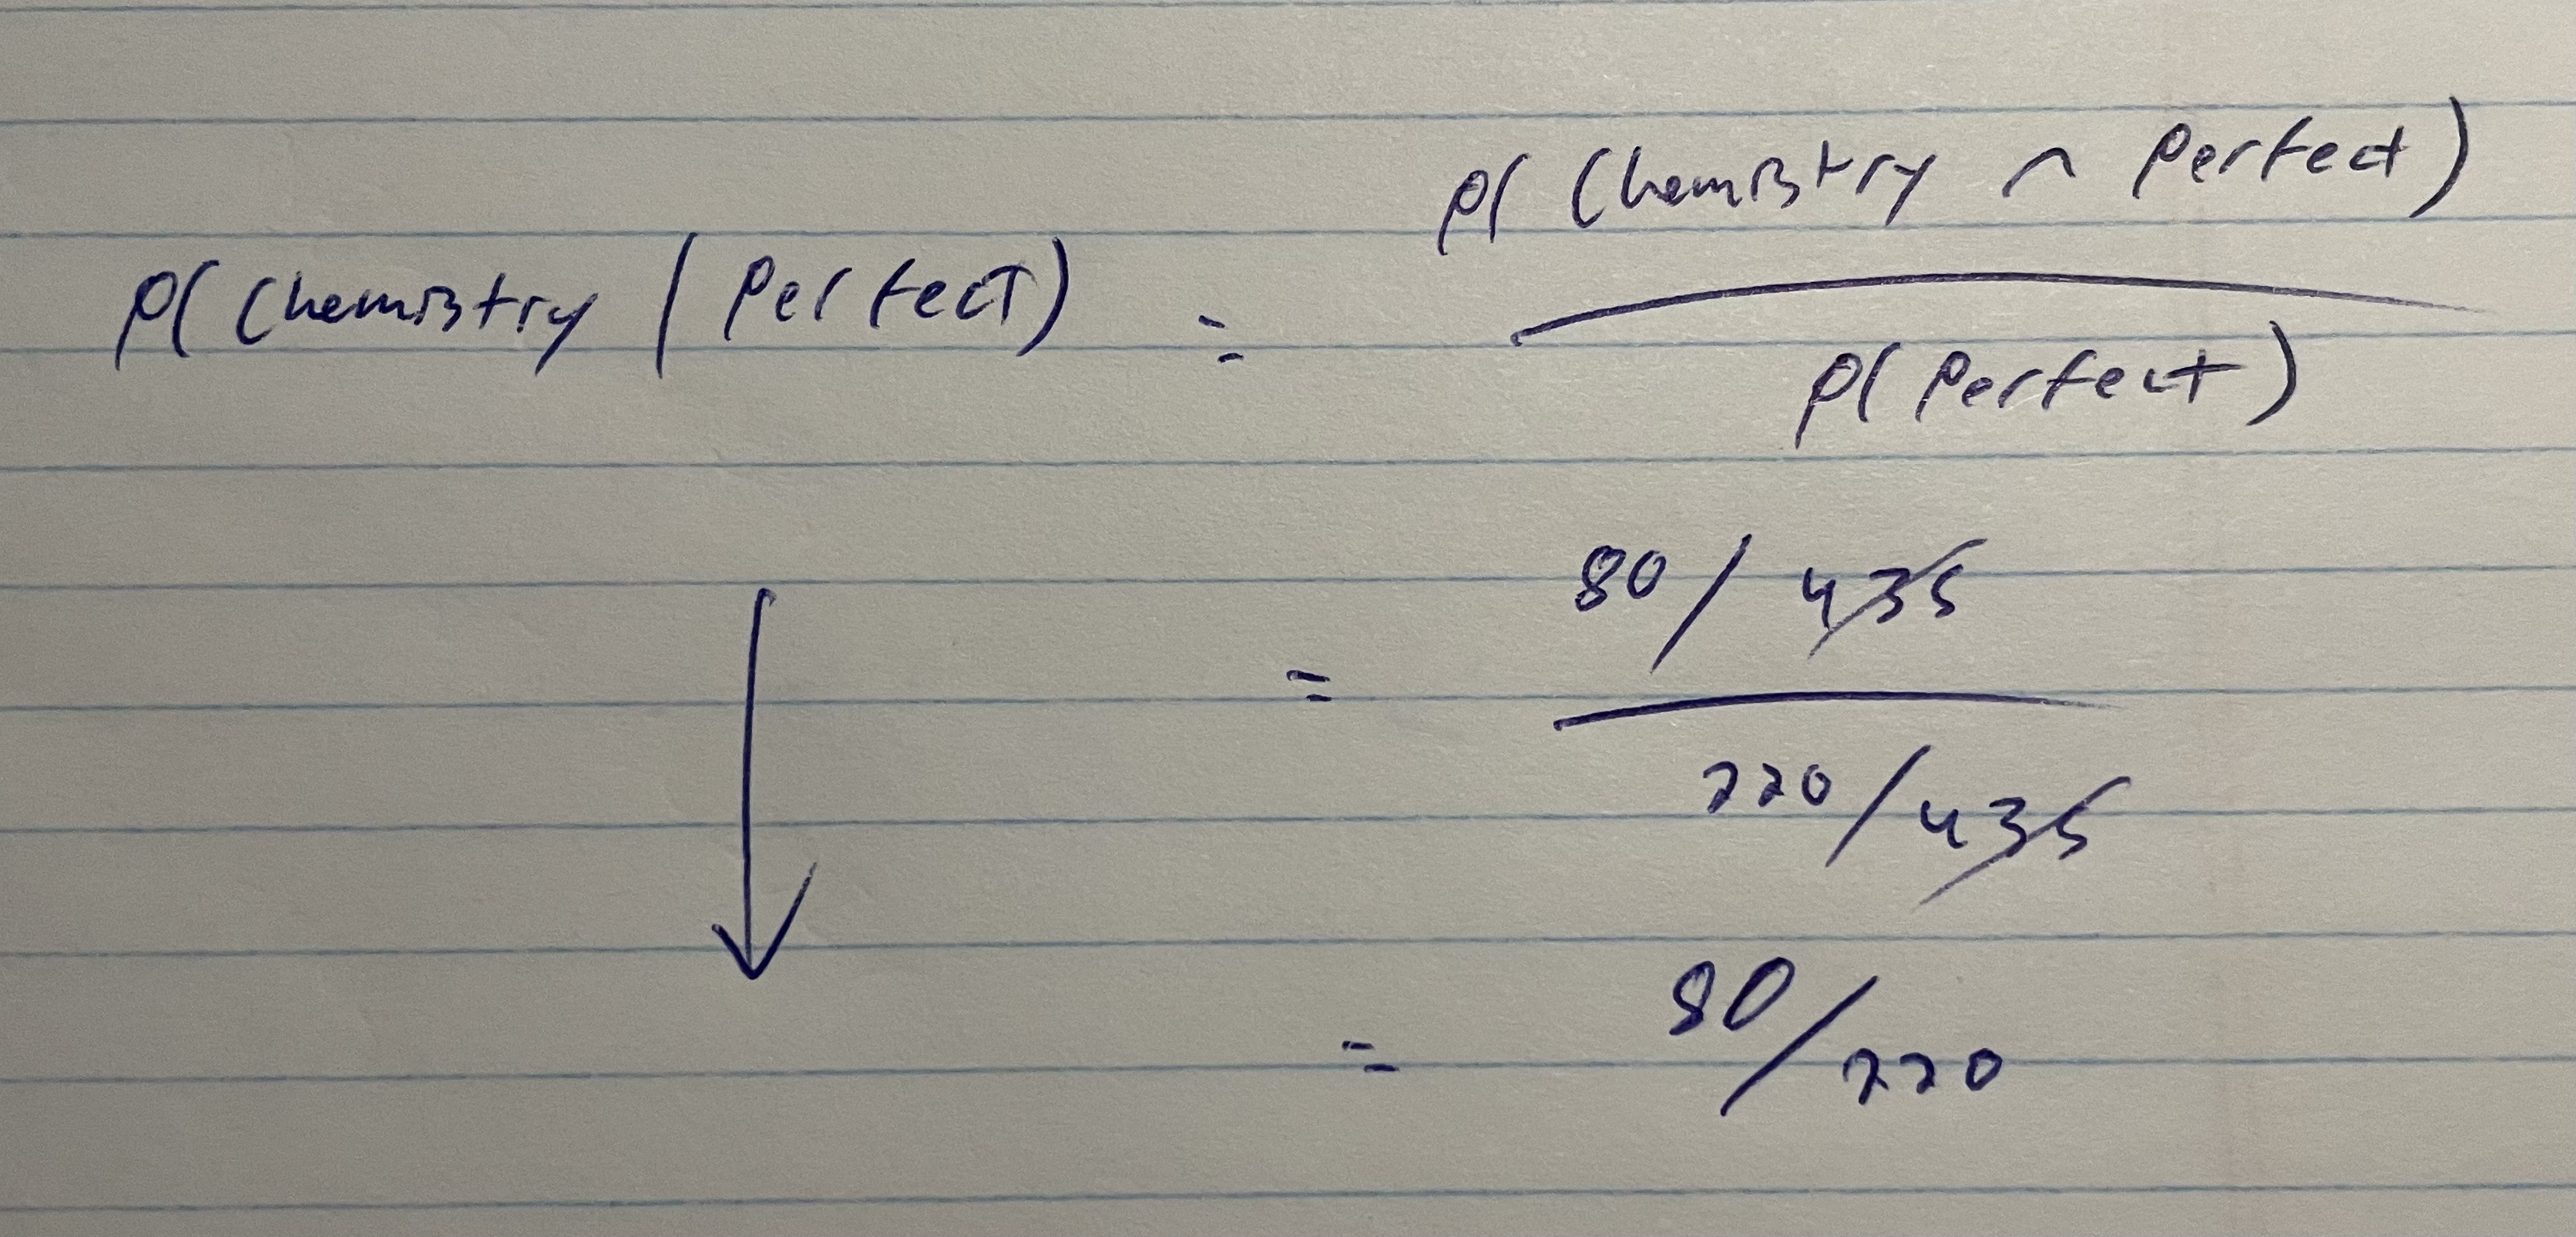 P(Chemistry | Perfect) = P(Chemistry ∩ Perfect) / P(Perfect)
= 80/435 / 220/435
= 80/220